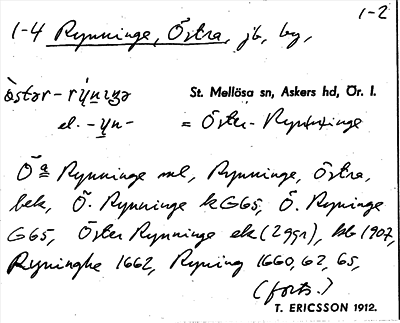 1-2
1-4 Rynninge, Östra, jb, by,
òstər-rýnıŋə St. Mellösa sn, Askers hd, Ör. l.
el. -yn- = Öster-Rynninge
Ö:a Rynninge ml, Rynninge, Östra,
bek, Ö. Rynninge k G65, Ö. Rynninge
G65, Öster Rynninge ek (2 ggr), kb 1907,
Ryninghe 1662, Ryning 1660, 62, 65,
(forts.)
T. ERICSSON 1912.